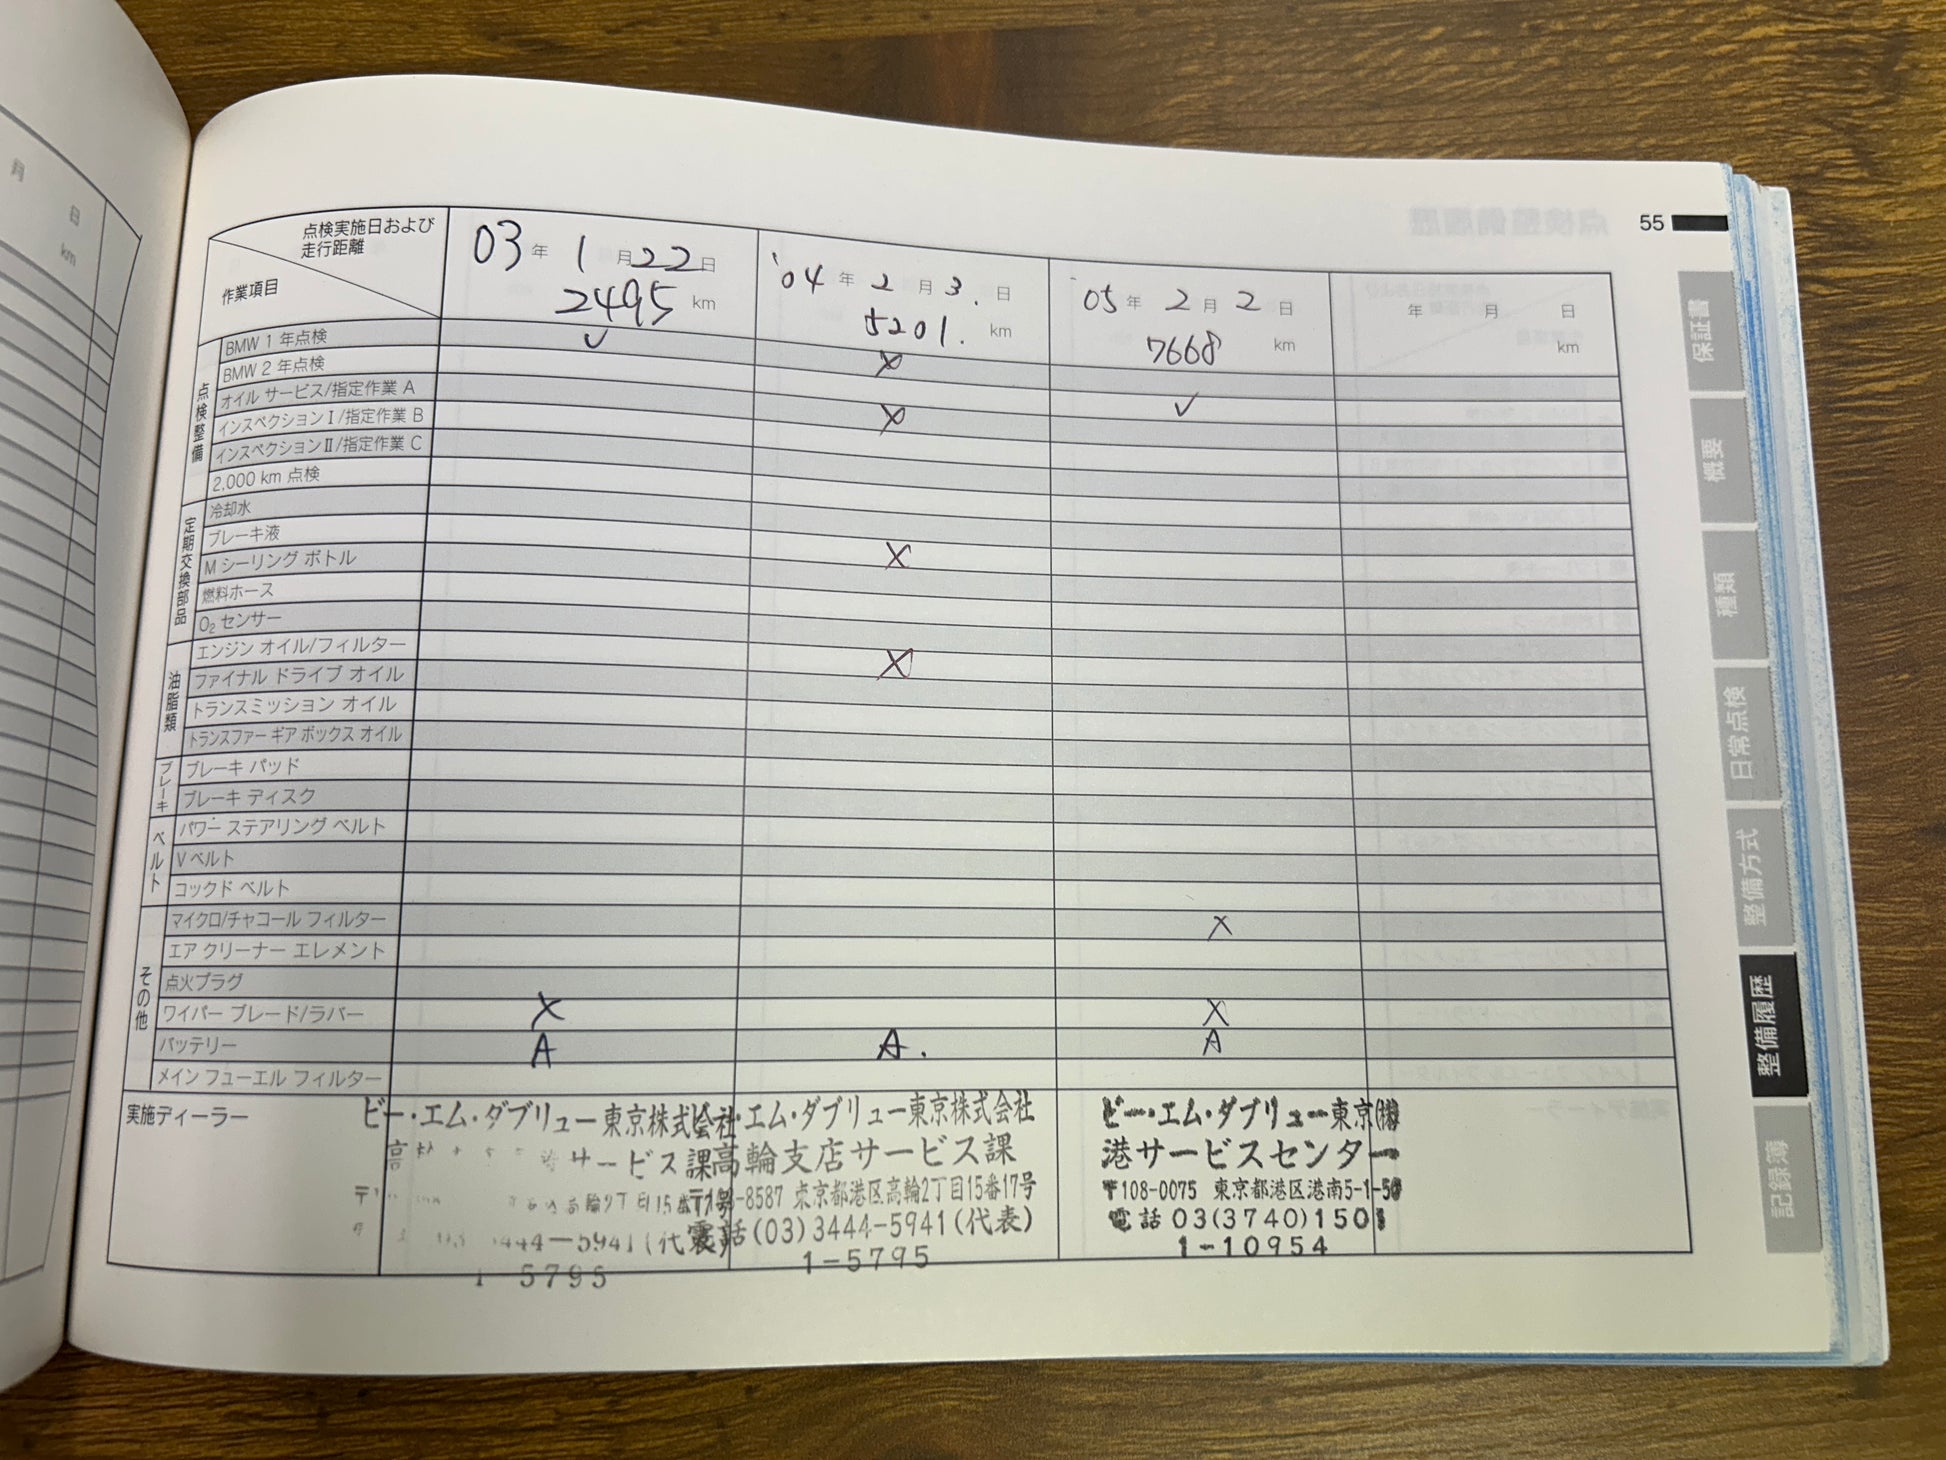 月
日
km
55
点検実施日および
走行距離
作業項目
03年 1月22日
2495 km
'04年 2月3.日
5201. km
05年 2月 2日
7668 km
年 月 日
km
点検整備
BMW 1 年点検 ✓
BMW 2 年点検 X
オイル サービス/指定作業 A ✓
インスペクションⅠ/指定作業 B X
インスペクションⅡ/指定作業 C
2,000 km 点検
定期交換部品
冷却水
ブレーキ液 X
M シーリング ボトル
燃料ホース
O₂ センサー
油脂類
エンジン オイル/フィルター X
ファイナル ドライブ オイル
トランスミッション オイル
トランスファー ギア ボックス オイル
ブレーキ
ブレーキ パッド
ブレーキ ディスク
ベルト
パワー ステアリング ベルト
V ベルト
コックド ベルト
その他
マイクロ/チャコール フィルター X
エア クリーナー エレメント
点火プラグ
ワイパー ブレード/ラバー X X
バッテリー A A. A
メイン フューエル フィルター
実施ディーラー
ビー・エム・ダブリュー東京株式会社
サービス課
高輪2丁目15番17号
444-5941(代表)
1-5795
エム・ダブリュー東京株式会社
高輪支店サービス課
-8587 東京都港区高輪2丁目15番17号
電話(03)3444-5941(代表)
1-5795
ビー・エム・ダブリュー東京㈱
港サービスセンター
〒108-0075 東京都港区港南5-1-50
電話 03(3740)1501
1-10954
保証書
概要
種類
日常点検
整備方式
整備履歴
記録簿